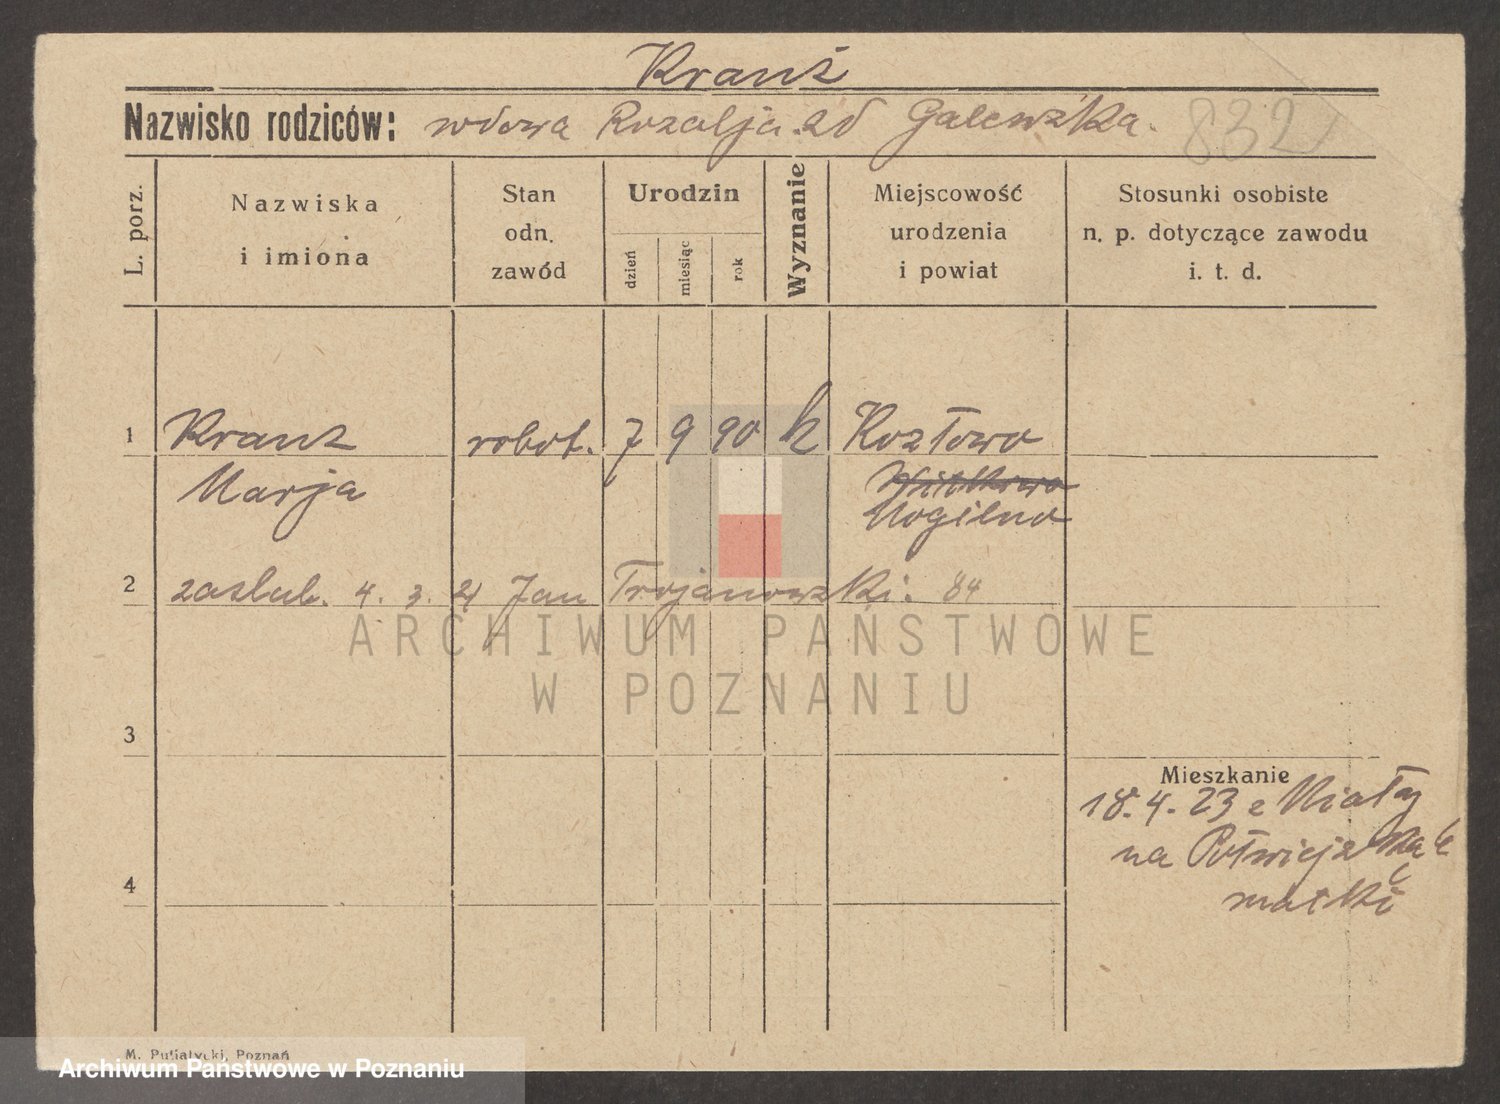 Kranz
Nazwisko rodziców: wdowa Rozalja zd Galewska. 832
L. porz. Nazwiska i imiona Stan odn. zawód Urodzin dzień miesiąc rok Wyznanie Miejscowość urodzenia i powiat Stosunki osobiste n. p. dotyczące zawodu i. t. d.
1 Kranz robot. 7 9 90 k Kozłowo
Marja Witkowo
Mogilno
2 zaslub. 4. 3. 21 Jan Trojanowski. 84
ARCHIWUM PAŃSTWOWE
W POZNANIU
3
Mieszkanie
18.4.23 z Miały
na Półwiejska
4
matki
M. Putiatycki, Poznań
Archiwum Państwowe w Poznaniu